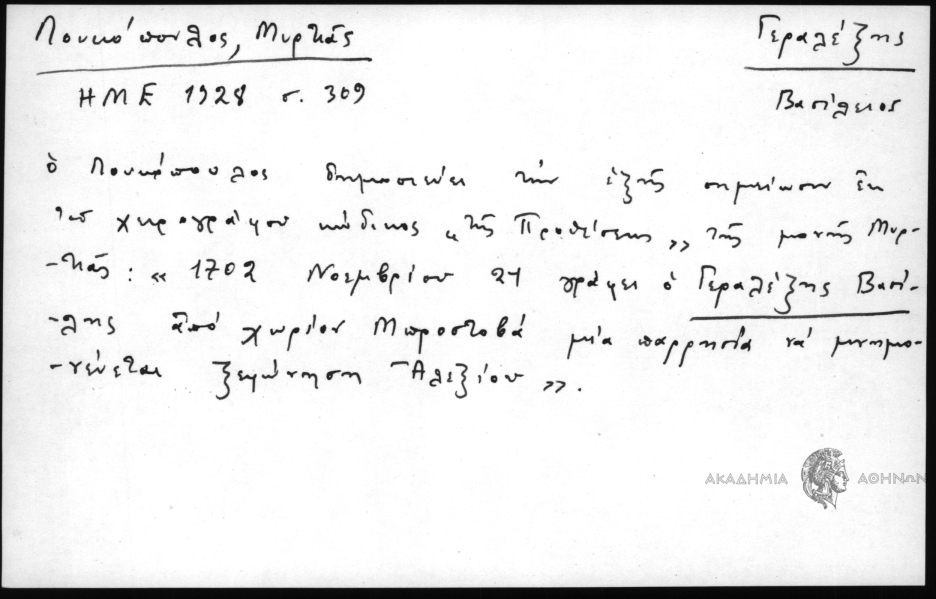 Λουκόπουλος, Μυρτιάς
Γεραλέξης
ΗΜΕ 1928 σ. 309
Βασίλειος
ὁ Λουκόπουλος δημοσιεύει τὴν ἑξῆς σημείωσιν ἐκ
τοῦ χειρογράφου κώδικος „τῆς Προθέσεως„ τῆς μονῆς Μυρ-
-τιᾶς: « 1702 Νοεμβρίου 21 γράφει ὁ Γεραλέξης Βασί-
-λης ἀπό χωρίον Μπροστοβά μία παρρησία νά μνημο-
-νεύεται ξεφώνηση Ἀλεξίου ».
ΑΚΑΔΗΜΙΑ ΑΘΗΝΩΝ